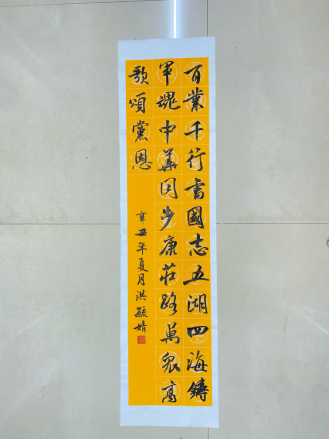 百業千行書國志五湖四海鑄
軍魂中華同步康莊路萬眾高
歌頌黨恩
辛丑年夏月洪毓婧